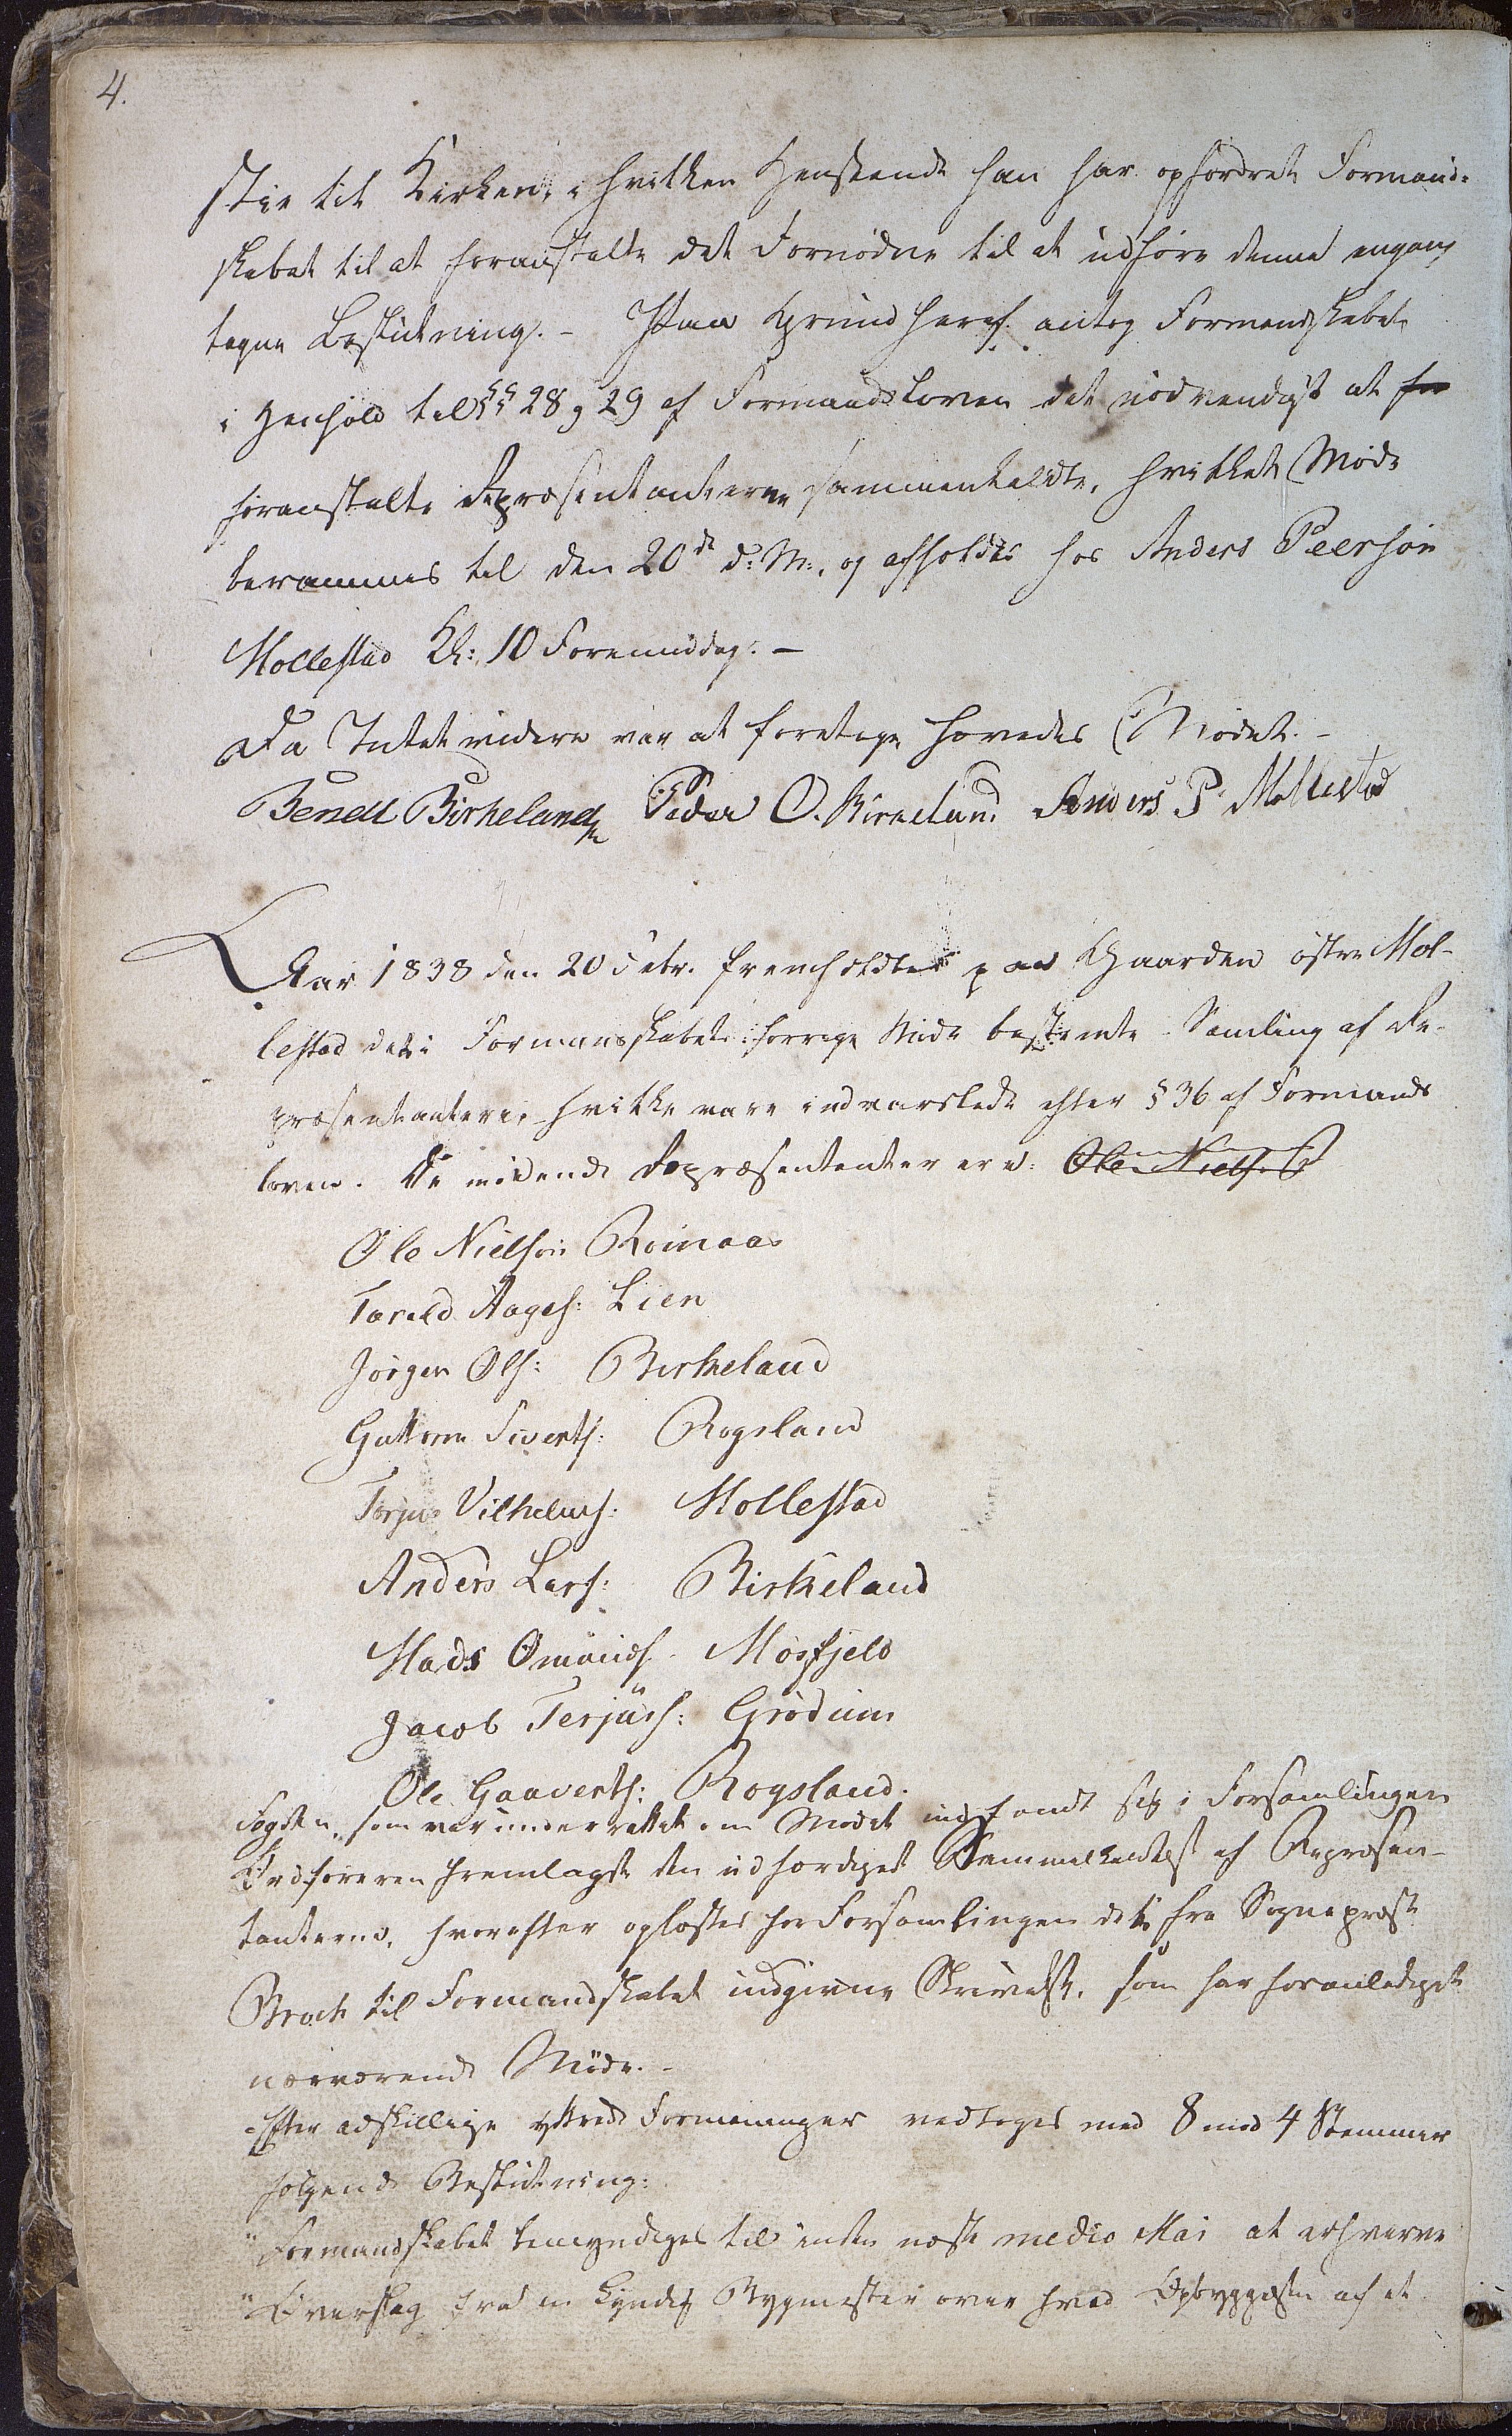 4.
stie til Kirken, i hvilken Henseende han har opfordret Formand-
skabet til at foranstalte det Fornødne til at udføre denne engang
tagne Beslutning. – Paa Grund heraf antog Formandskabet
i Henhold til §§ 28 og 29 af Formandsloven det nødvendigt at for
foranstalte Repræsentanterne sammenkaldte, hvilket Møde
berammes til den 20de d: M:, og afholdes hos Anders Peersøn
Mollestad Kl: 10 Formiddag. –
Da Intet videre var at foretage hævedes Mødet. –
Bendt Birkeland Peder O. Birkeland Anders P Mollestad
Aar 1838 den 20 Febr. fremholdtes paa Gaarden østre Mol-
lestad det i Formandskabets forrige Møde bestemte Samling af Re-
præsentanter, hvilke vare indvarslede efter § 36 af Formands
loven. De mødende Repræsentanter ere: Ole Niels:
Ole Nielsøn Roinaas
Tareld Aages: Lien
Jørgen Ols: Birkeland
Guttorm Siverts: Rogsland
Terjus Vilhelms: Mollestad
Anders Lars: Birkeland
Mads Omunds. Mosfjeld
Jacob Terjus: Grødum
Ole Gaaverts: Rogsland.
Fogden, som var underrettet om Mødet indfandt sig i Forsamlingen
Ordføreren fremlagde den udfærdiget Sammenkaldelse af Repræsen-
tanterne, hvorefter oplæstes for Forsamlingen det fra Sognepræst
Broch til Formandskabet indgivne Skrivelse, som har foranlediget
nærværende Møde. –
Efter adskillige yttrede Formeninger vedtoges med 8 mod 4 Stemmer
følgende Beslutning:
" Formandskabet bemyndiges til inden næste medio Mai at erhverve
" Overslag fra en kyndig Bygmester over hvad Opbyggelsen af et